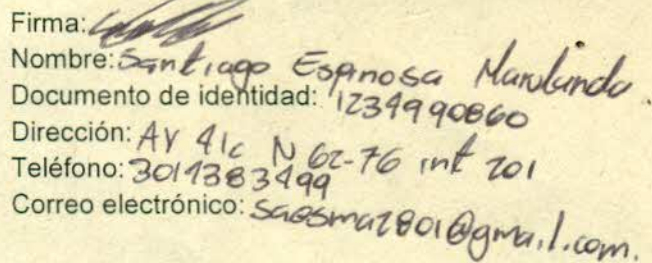 Firma:
Nombre: Santiago Espinosa Marulanda.
Documento de identidad: 1234990860
Dirección: AV 41c N 62-76 int 201
Teléfono: 3014383499
Correo electrónico: saesma2801@gmail.com.